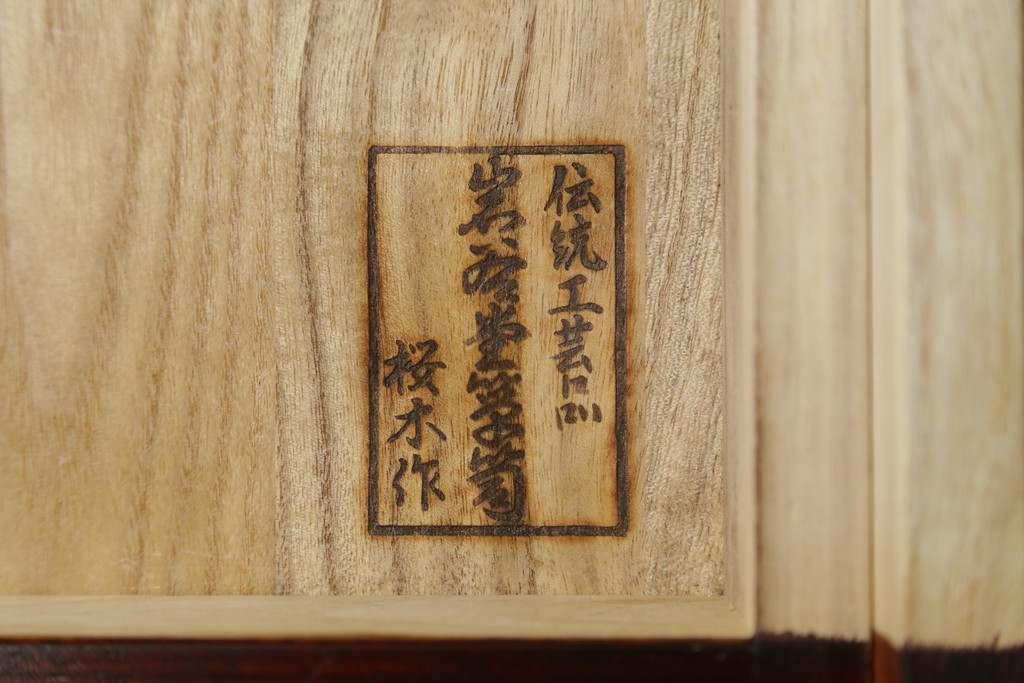 伝統工芸品
岩谷堂箪笥
桜木作